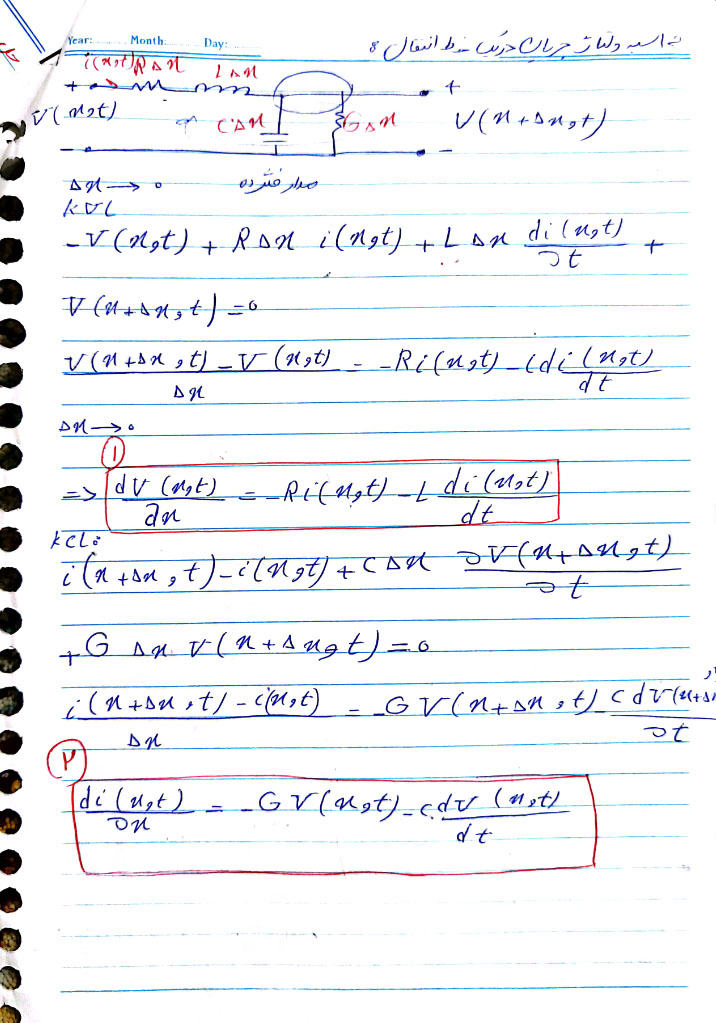 Year: Month: Day:
محاسبه ولتاژ جریان در یک خط انتقال :
i(x,t) RΔx LΔx
+ +
V(x,t) CΔx GΔx V(x+Δx,t)
- -
Δx → 0 مدار فشرده
KVL
-V(x,t) + RΔx i(x,t) + LΔx di(x,t)/∂t +
V(x+Δx,t) = 0
V(x+Δx,t) - V(x,t)/Δx = -Ri(x,t) - L di(x,t)/dt
Δx → 0
①
=> dV(x,t)/∂x = -Ri(x,t) - L di(x,t)/dt
KCL:
i(x+Δx,t) - i(x,t) + CΔx ∂V(x+Δx,t)/∂t
+ G Δx V(x+Δx,t) = 0
i(x+Δx,t) - i(x,t)/Δx = -GV(x+Δx,t) - C dV(x+Δx/∂t
۲
di(x,t)/∂x = -GV(x,t) - C dV(x,t)/dt